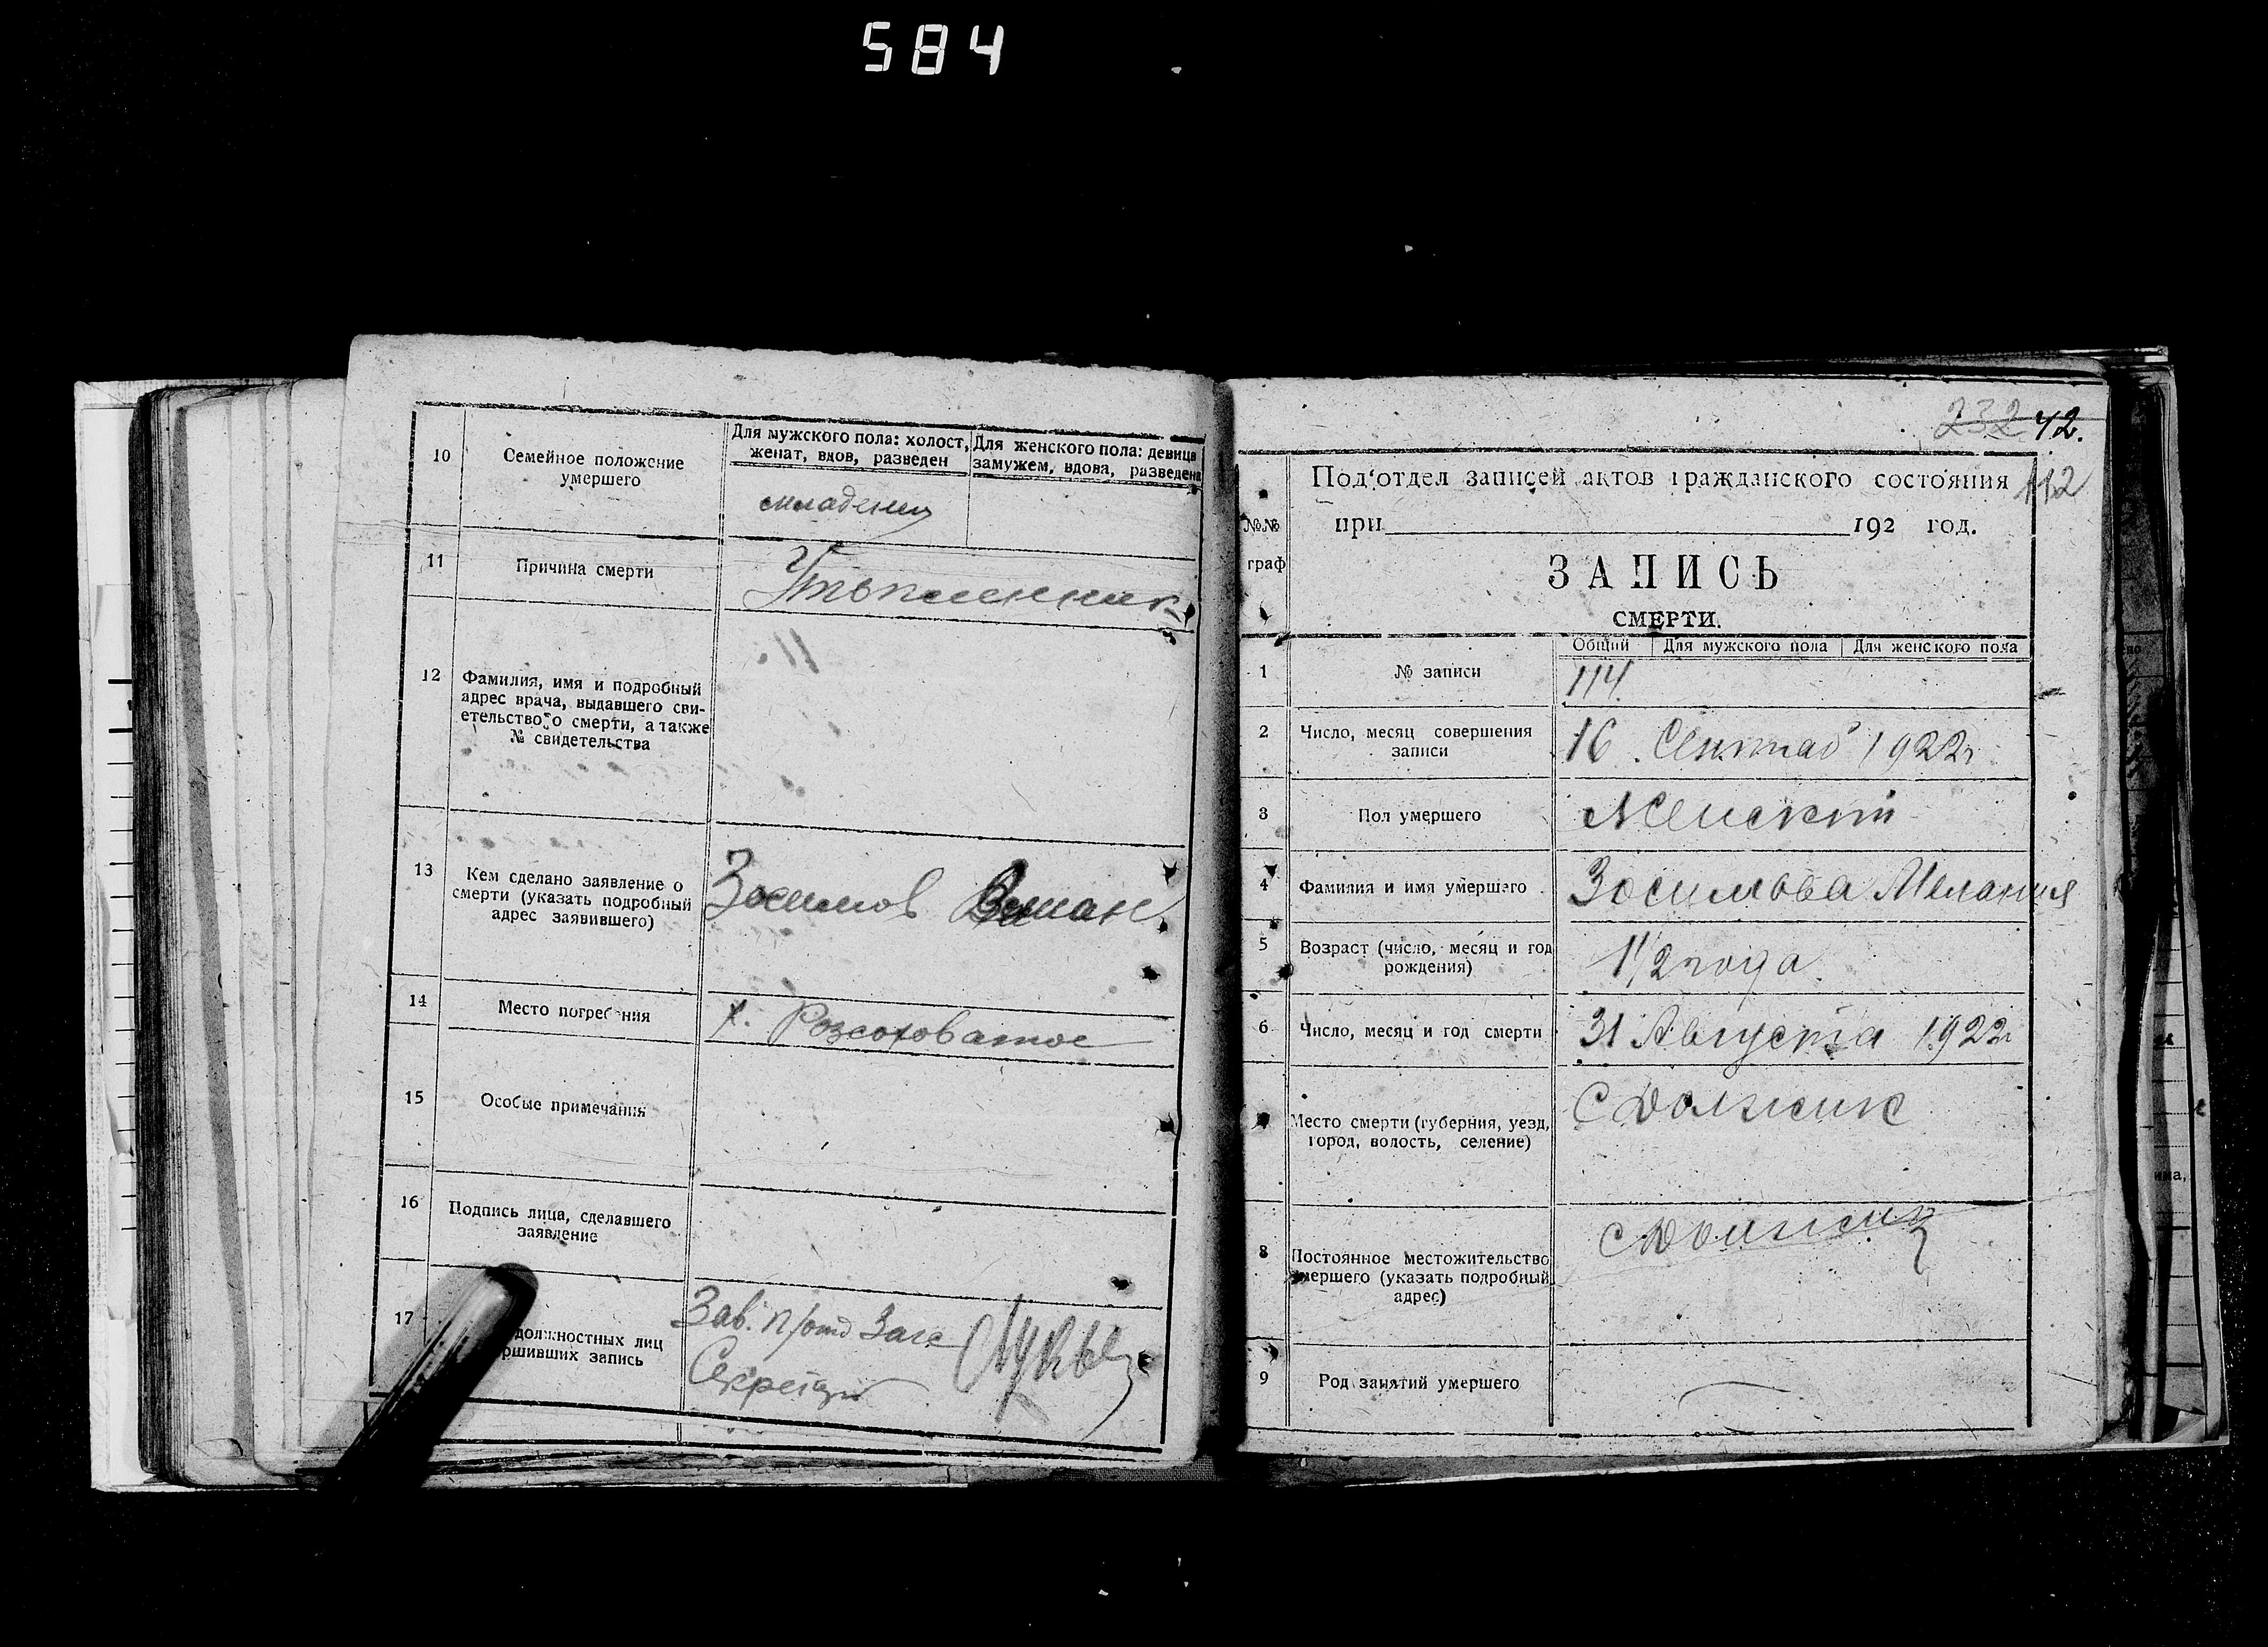 584
10
Семейное положение
умершего
Для мужского пола: холост,
женат, вдов, разведен
Для женского пола: девица
замужем, вдова, разведена
младенец
11
Причина смерти
12
Фамилия, имя и подробный
адрес врача, выдавшего сви-
етельство о смерти, а также
№ свидетельства
13
Кем сделано заявление о
смерти (указать подробный
адрес заявившего)
Зосимов
14
Место погребения
х. Розсоховатое
15
Особые примечания
16
Подпись лица, сделавшего
заявление
17
должностных лиц
ршивших запись
Зав. п/отд Загс
Секретарь
232 42.
112
Под'отдел записей актов гражданского состояния
№№
граф
при 192 год.
ЗАПИСЬ
СМЕРТИ.
Общий Для мужского пола Для женского пола
1
№ записи
114
2
Число, месяц совершения
записи
16 Сентяб 1922г
3
Пол умершего
Женский
4
Фамилия и имя умершего
Зосимова Мелания
5
Возраст (число, месяц и год
рождения)
1 1/2 года
6
Число, месяц и год смерти
31 Августа 1922г
Место смерти (губерния, уезд,
город, волость, селение)
С Должик
8
Постоянное местожительство
умершего (указать подробный
адрес)
С Должик
9
Род занятий умершего